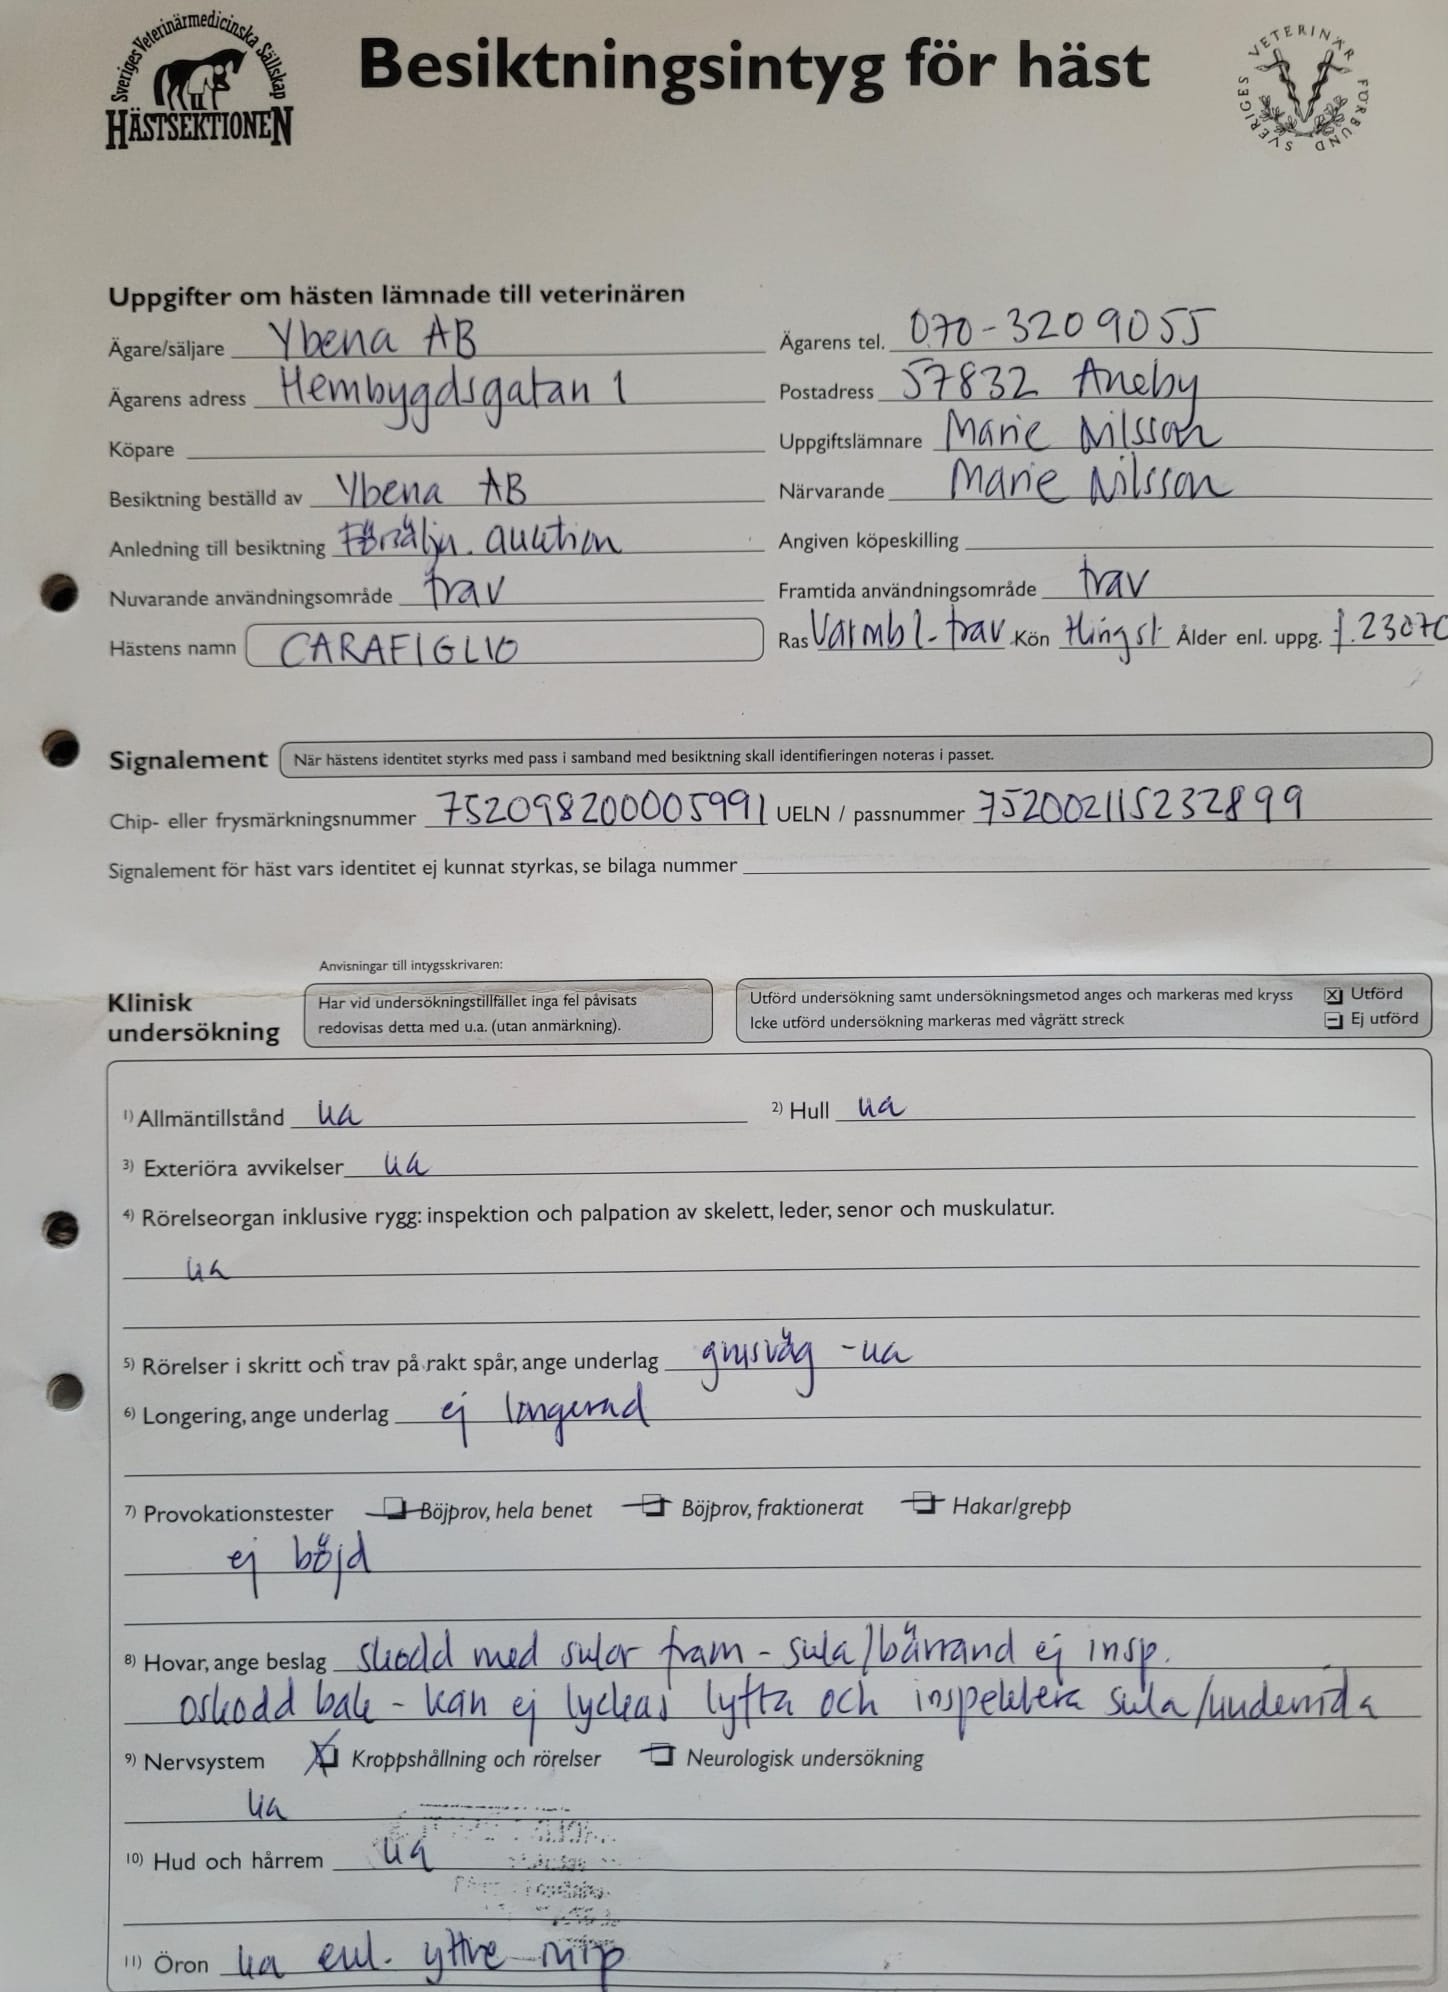 Sveriges Veterinärmedicinska Sällskap
HÄSTSEKTIONEN
Besiktningsintyg för häst
SVERIGES VETERINÄR FÖRBUND
Uppgifter om hästen lämnade till veterinären
Ägare/säljare Ybena AB Ägarens tel. 070-3209055
Ägarens adress Hembygdsgatan 1 Postadress 57832 Aneby
Köpare Uppgiftslämnare Marie Nilsson
Besiktning beställd av Ybena AB Närvarande Marie Nilsson
Anledning till besiktning Försäljn. auktion Angiven köpeskilling
Nuvarande användningsområde trav Framtida användningsområde trav
Hästens namn CARAFIGLIO Ras Varmbl-trav Kön Hingst Ålder enl. uppg. f.23070
Signalement När hästens identitet styrks med pass i samband med besiktning skall identifieringen noteras i passet.
Chip- eller frysmärkningsnummer 752098200005991 UELN / passnummer 752002115232899
Signalement för häst vars identitet ej kunnat styrkas, se bilaga nummer
Anvisningar till intygsskrivaren:
Klinisk undersökning
Har vid undersökningstillfället inga fel påvisats
redovisas detta med u.a. (utan anmärkning).
Utförd undersökning samt undersökningsmetod anges och markeras med kryss Utförd
Icke utförd undersökning markeras med vågrätt streck Ej utförd
1) Allmäntillstånd ua 2) Hull ua
3) Exteriöra avvikelser ua
4) Rörelseorgan inklusive rygg: inspektion och palpation av skelett, leder, senor och muskulatur.
ua
5) Rörelser i skritt och trav på rakt spår, ange underlag grusväg - ua
6) Longering, ange underlag ej longerad
7) Provokationstester Böjprov, hela benet Böjprov, fraktionerat Hakar/grepp
ej böjd
8) Hovar, ange beslag skodd med sulor fram - sula/bärrand ej insp.
oskodd bak - kan ej lyckas lyfta och inspektera sula/undersida
9) Nervsystem Kroppshållning och rörelser Neurologisk undersökning
ua
10) Hud och hårrem ua
11) Öron ua enl. yttre insp